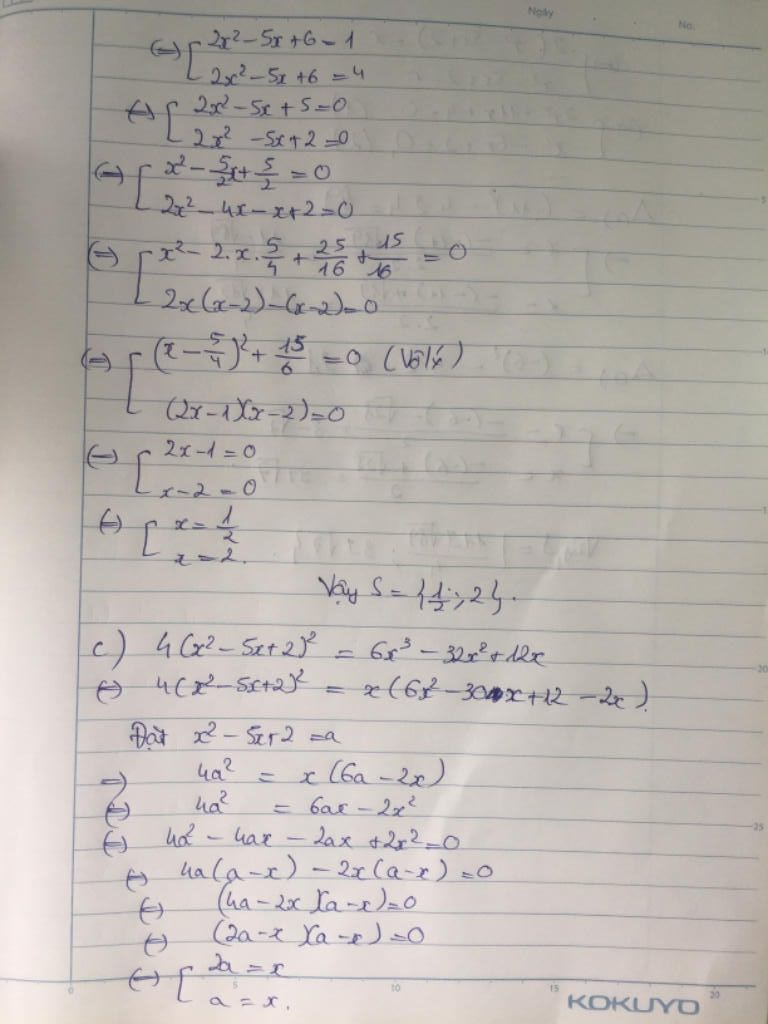 Ngày
No.
⇔ [ 2x² - 5x + 6 = 1
2x² - 5x + 6 = 4
⇔ [ 2x² - 5x + 5 = 0
2x² - 5x + 2 = 0
⇔ [ x² - 5/2 x + 5/2 = 0
2x² - 4x - x + 2 = 0
⇔ [ x² - 2.x.5/4 + 25/16 + 15/16 = 0
2x(x-2) - (x-2) = 0
⇔ [ (x - 5/4)² + 15/6 = 0 (Vô lý)
(2x-1)(x-2) = 0
⇔ [ 2x-1 = 0
x-2 = 0
⇔ [ x = 1/2
x = 2.
Vậy S = {1/2; 2}.
c) 4(x² - 5x + 2)² = 6x³ - 32x² + 12x
⇔ 4(x² - 5x + 2)² = x(6x² - 30x + 12 - 2x).
Đặt x² - 5x + 2 = a
⇒ 4a² = x(6a - 2x)
⇔ 4a² = 6ax - 2x²
⇔ 4a² - 4ax - 2ax + 2x² = 0
⇔ 4a(a-x) - 2x(a-x) = 0
⇔ (4a - 2x)(a-x) = 0
⇔ (2a - x)(a-x) = 0
⇔ [ 2a = x
a = x.
0 5 10 15 20
5
1
1
20
25
KOKUYO